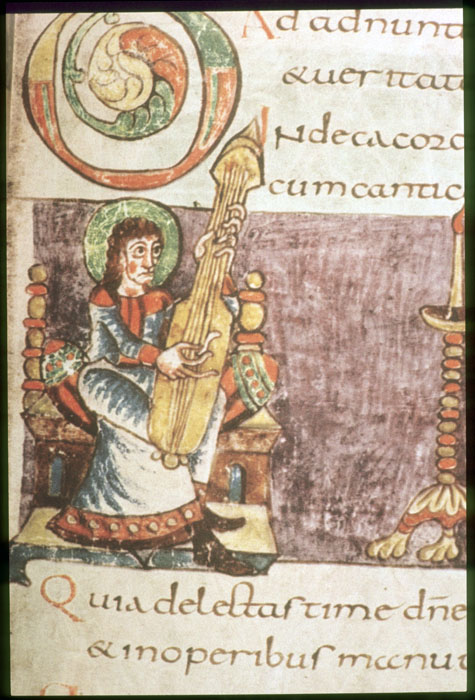 Ad adnunt
&ueritat
INdecacor
cumcantic
Quia delectasti me dn̄e
&inoperibus manu